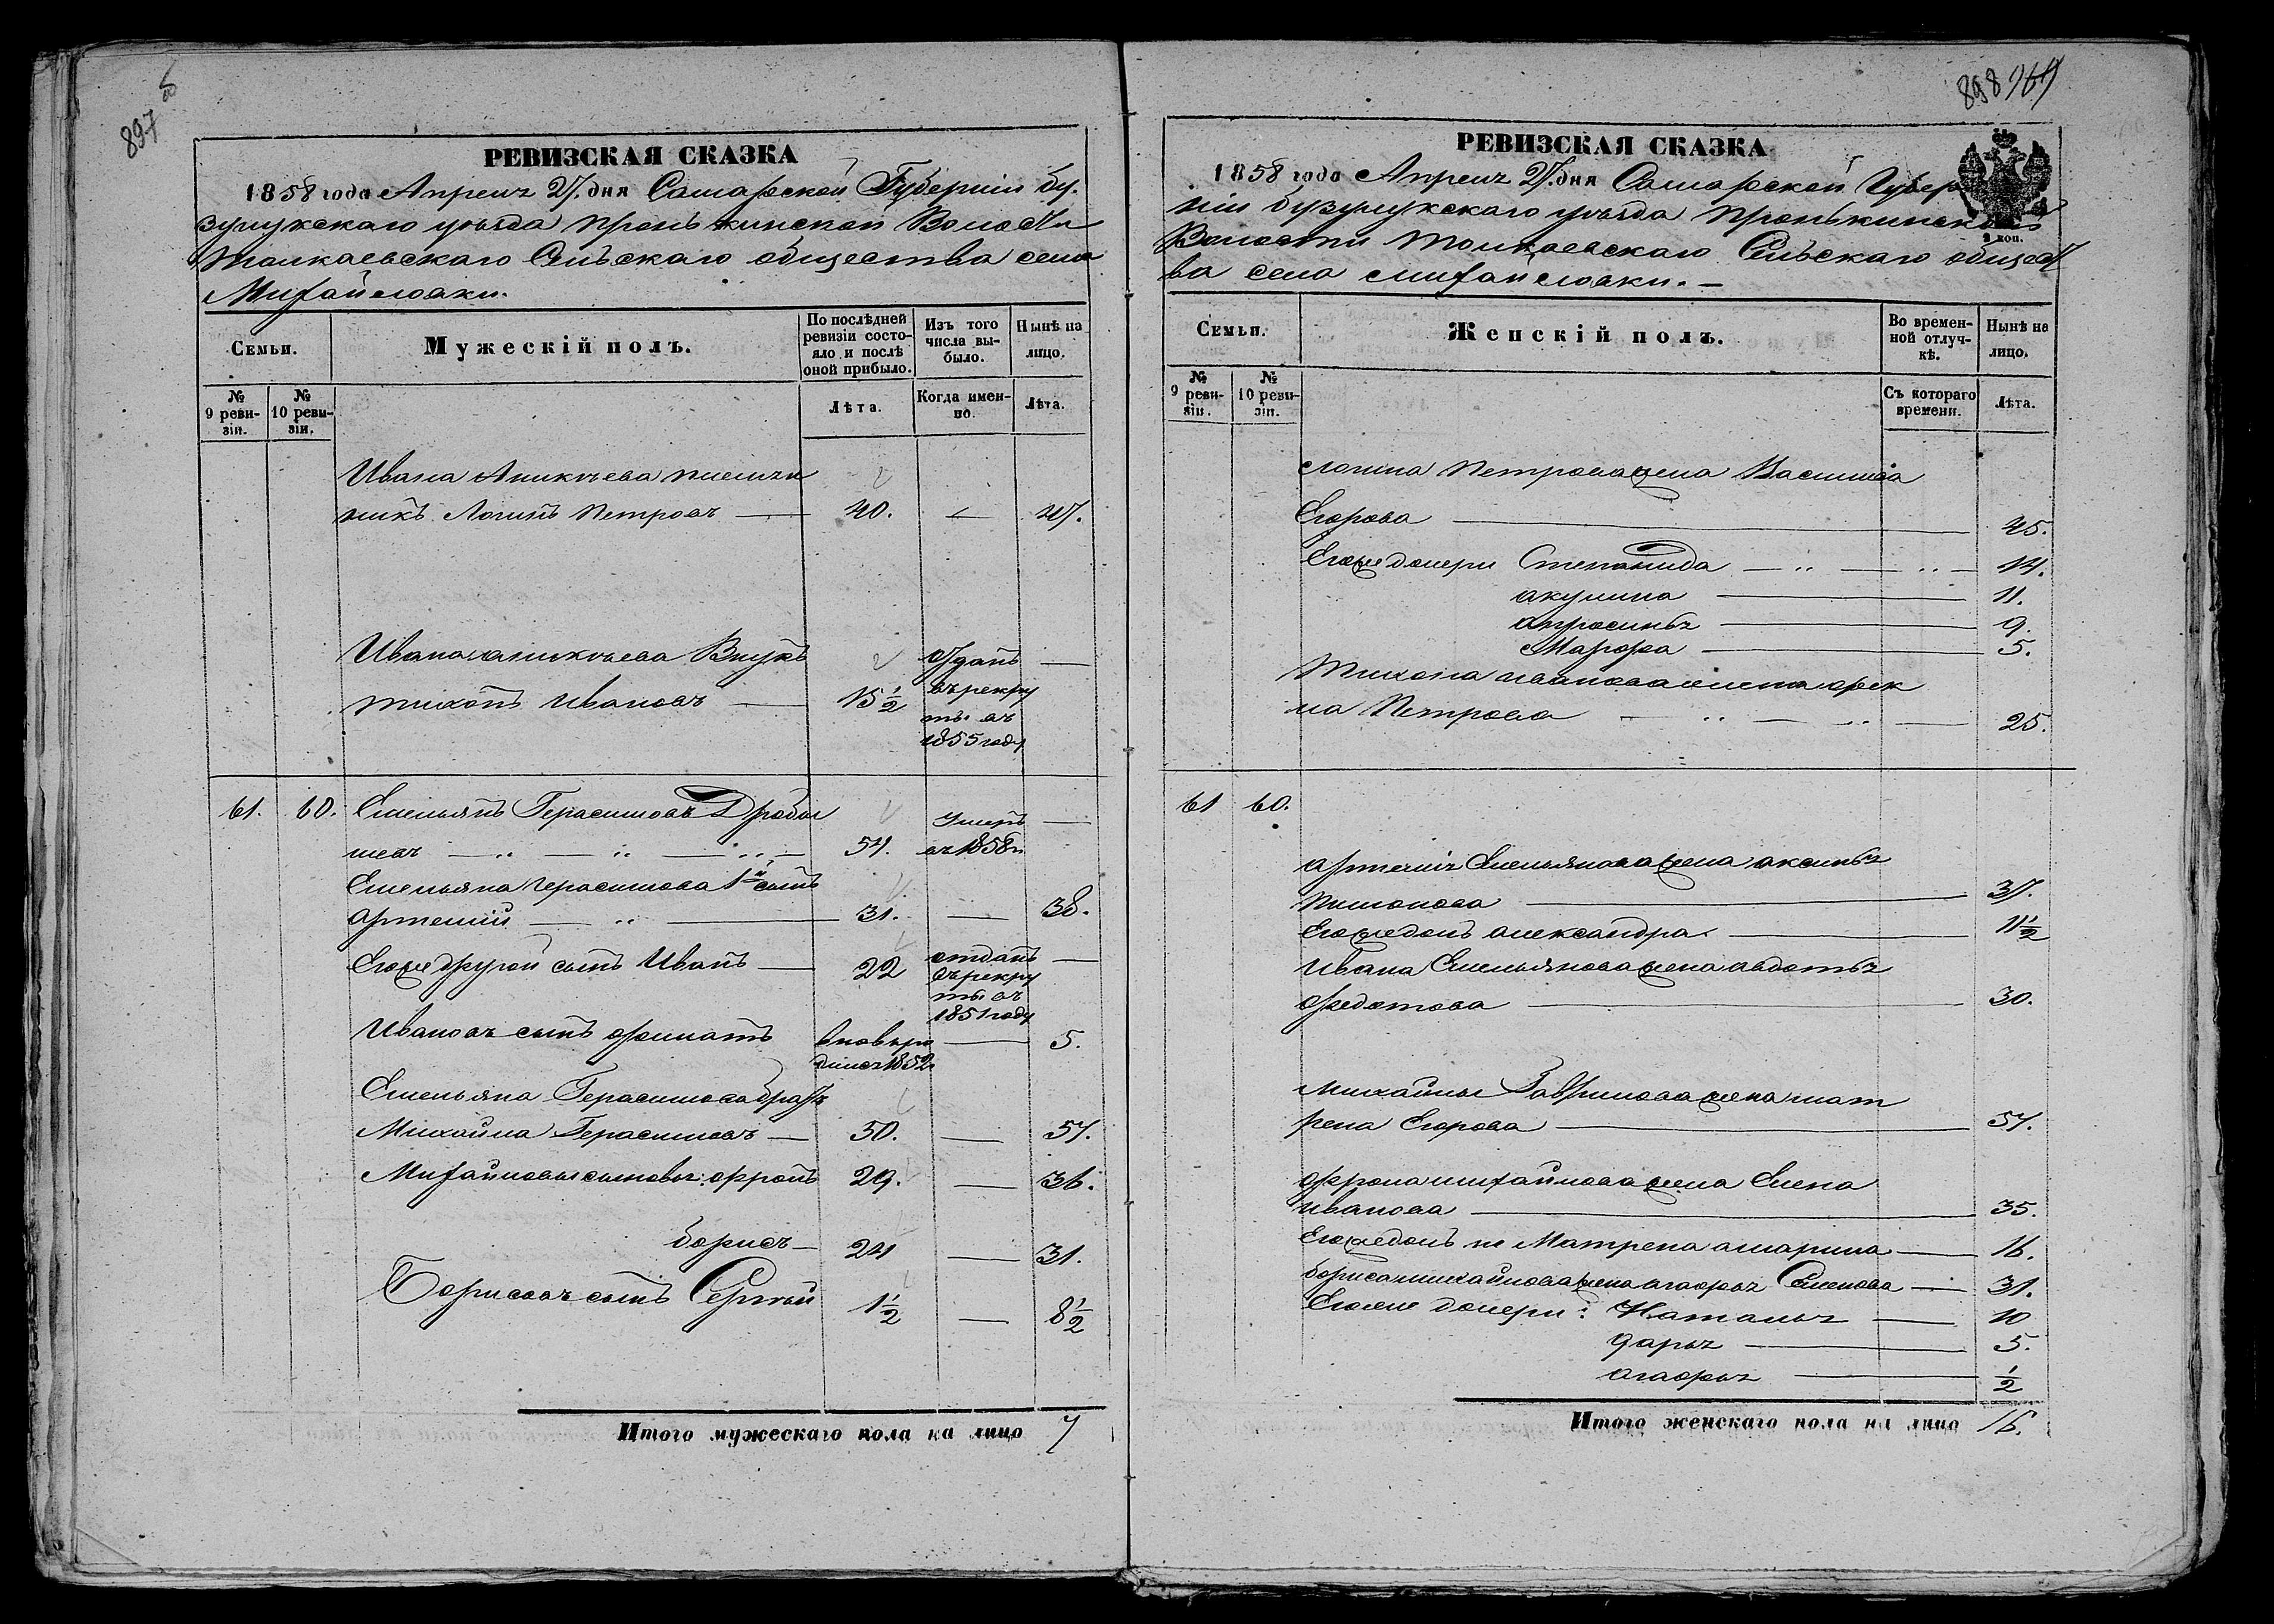 897
РЕВИЗСКАЯ СКАЗКА
1858 года Апреля 27. дня Самарской Губерніи Бу-
зулукскаго уѣзда Пронькинской Волости
Толкаевскаго Сельскаго общества села
Михайловки.
Семьи.
Мужескій полъ.
По послѣдней ревизіи состояло и послѣ оной прибыло.
Изъ того числа выбыло.
Нынѣ на лицо.
№ 9 ревизіи.
№ 10 ревизіи.
Лѣта.
Когда именно.
Лѣта.
Ивана Аникиева племян
никъ Логинъ Петровъ — 40. — 47.
Ивана аникиева Внукъ Отданъ —
тихонъ Ивановъ — 15 1/2 въ рекру
ты въ
1855 году
61. 60. Емельянъ Герасимовъ Дробы
шевъ — 54. Умеръ въ 1858 г. —
Емельяна герасимова 1й сынъ
артемий — 31. — 38.
Егоже другой сынъ Иванъ — 22 отданъ —
въ рекру
ты въ
1851 году
Ивановъ сынъ филатъ вновь ро — 5.
дился 1852
Емельяна Герасимова братъ
Михайла Герасимовъ — 50. — 57.
Михайловы сыновья: офронъ 29. — 36.
борисъ — 24 — 31.
Борисовъ сынъ Сергей 1 1/2 — 8 1/2
Итого мужескаго пола на лицо 7
898
РЕВИЗСКАЯ СКАЗКА
1858 года Апреля 27. дня Самарской Губер
ніи бузулукскаго уѣзда Пронькинской
Волости толкаевскаго Сельскаго общест
ва села михайловки. —
2 коп.
Семьи.
Женскій полъ.
Во временной отлучкѣ.
Нынѣ на лицо.
№ 9 ревизіи.
№ 10 ревизіи.
Съ котораго времени.
Лѣта.
логина Петрова жена Василиса
Егорова — 45.
Егоже дочери Степанида — 14.
акулина — 11.
апросинья — 9.
Марфа — 5.
Тихона иванова жена фек
ла Петрова — 25.
61 60.
артемия Емельянова жена аксинья
— 37.
Егоже дочь александра. — 11 1/2
Ивана Емельянова жена авдотья
федотова — 30.
Михайлы Гаврилова жена мат
рена Егорова — 57.
офрона михайлова жена Елена
иванова — 35.
Егоже дочь не Матрена а марина — 16.
бориса михайлова жена агафья Семенова — 31.
Егоже дочери: Наталья — 10
дарья — 5.
агафья — 1/2
Итого женскаго пола на лицо 16.